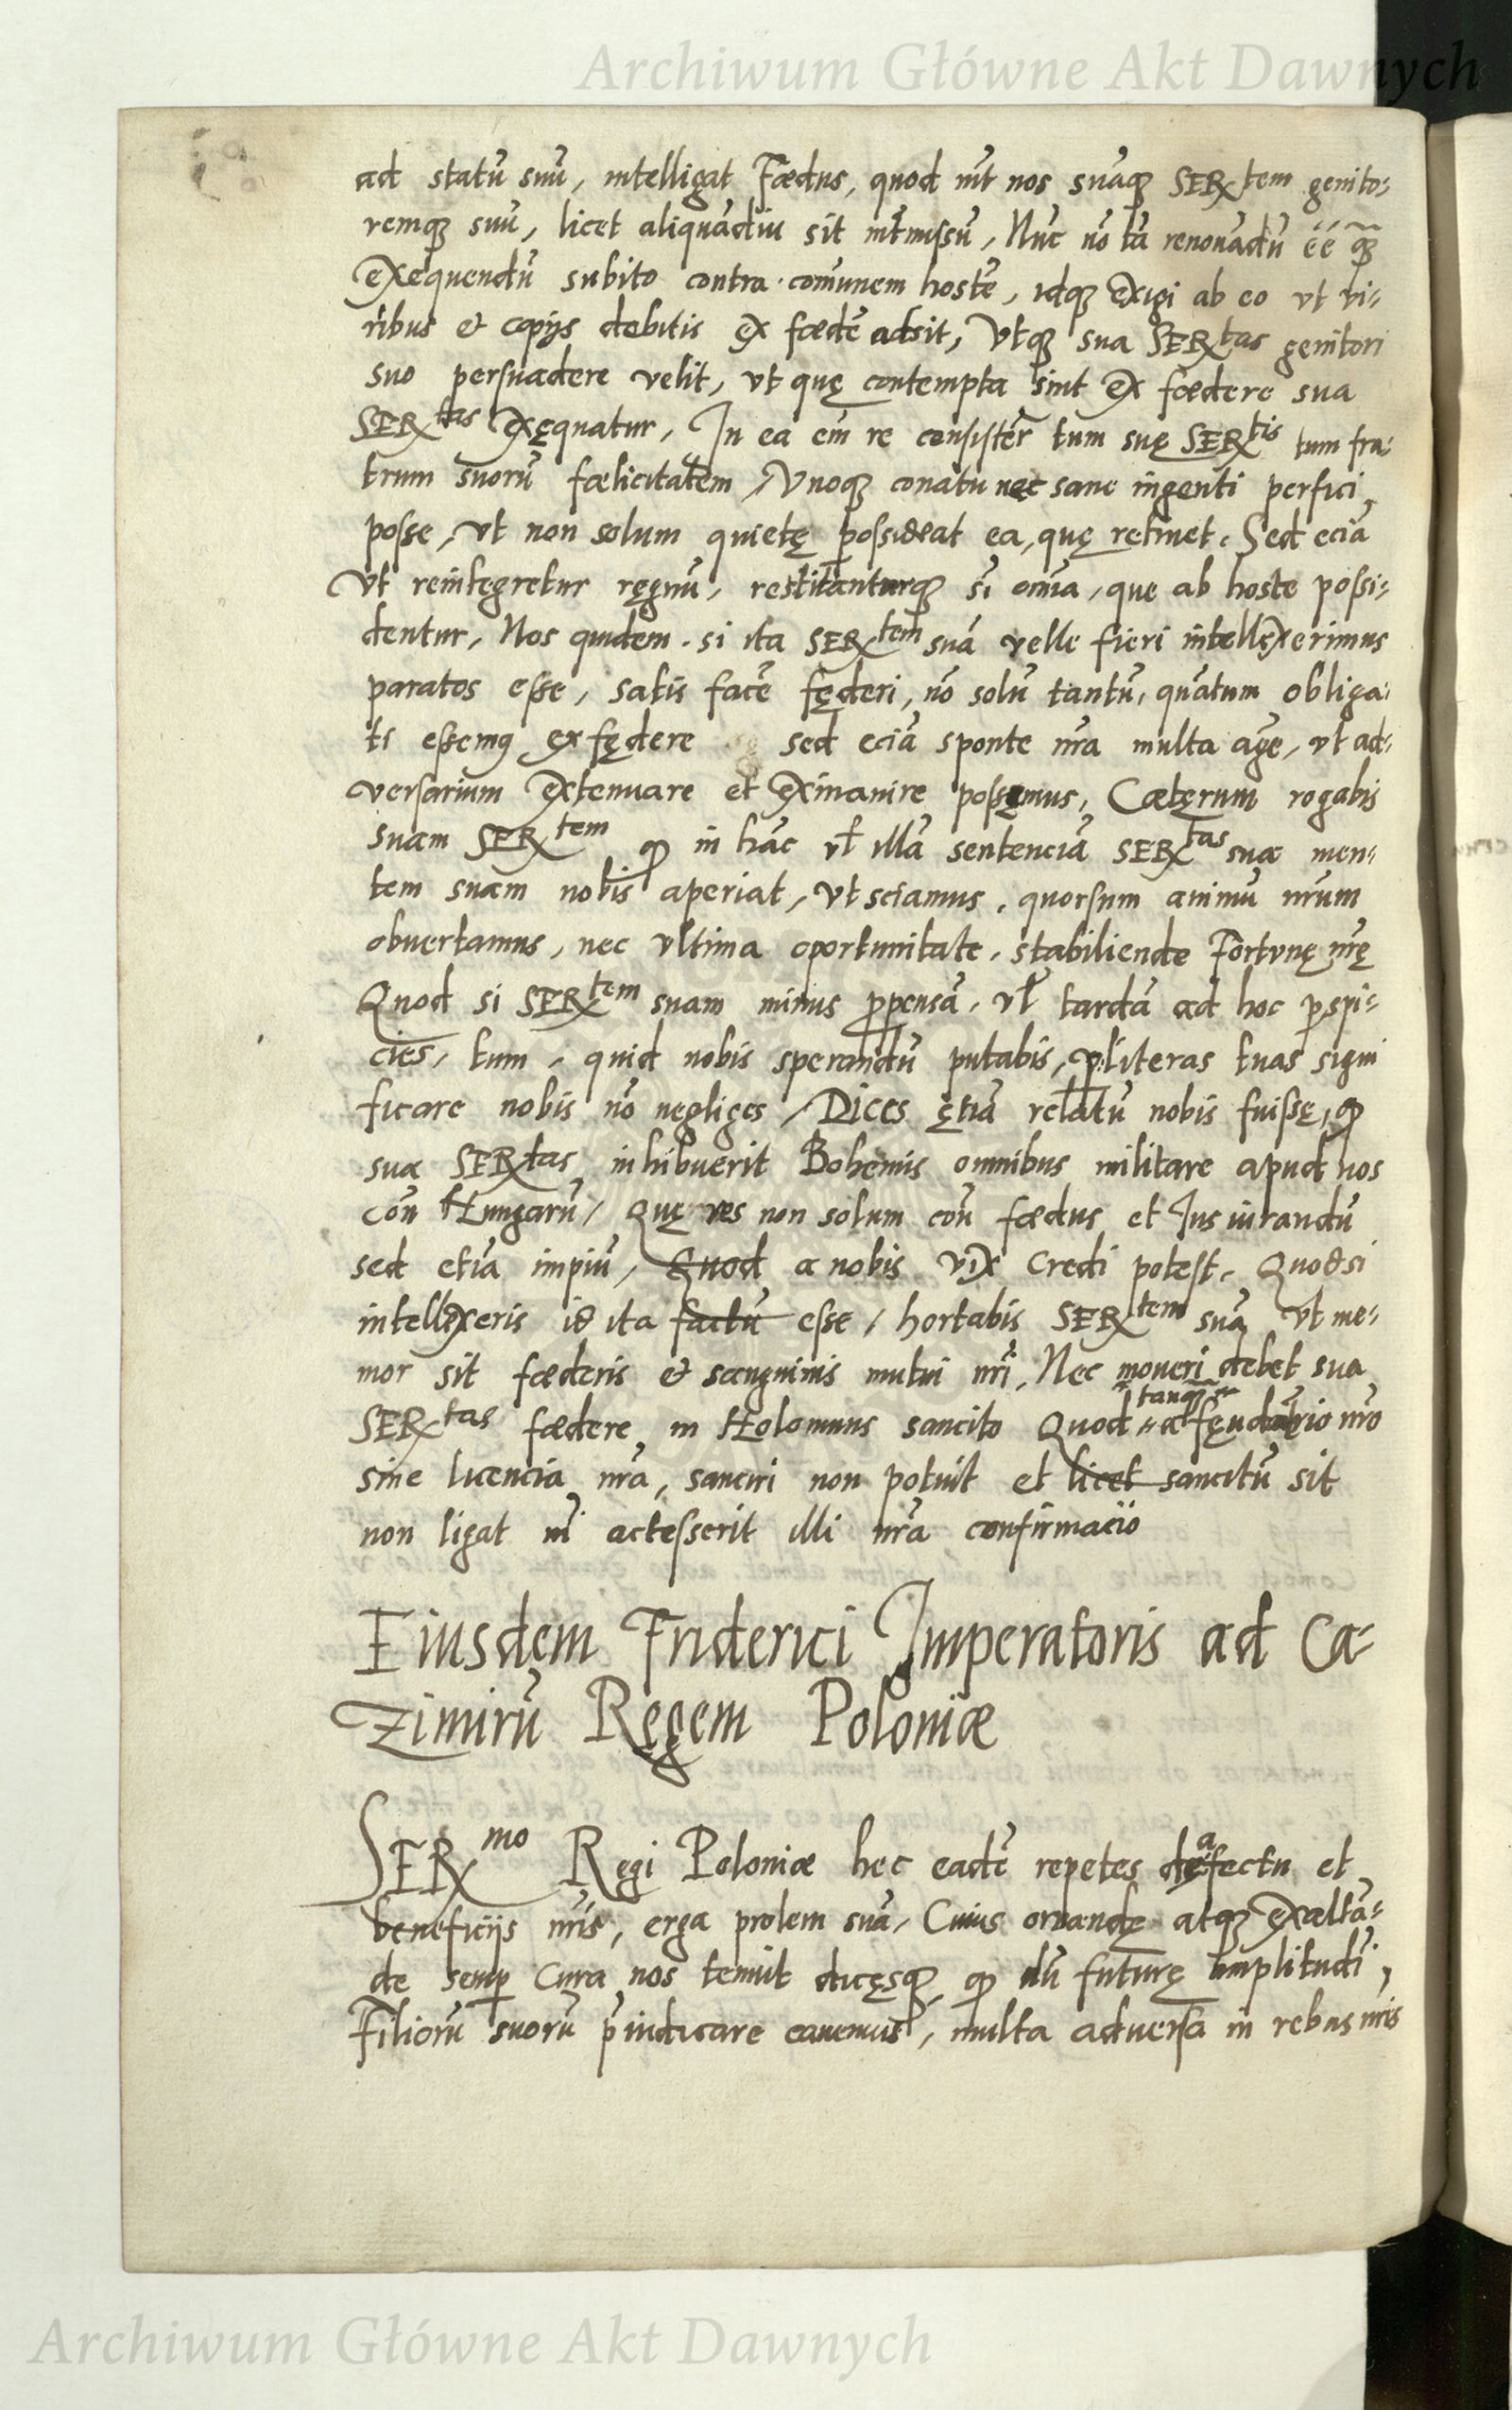 Archiwum Główne Akt Dawnych
ad statū suū, intelligat Fœdus, quod int̄ nos suāq₃ SERtem genito=
remq₃ suū, licet aliquādiu sit int̄missū, Nūc nō tā renouādū ēē q̄₃
Exequendū subito contra comūnem hostē, idq₃ exigi ab eo vt vi=
ribus et copijs debitis ex fœdē adsit, Vtq₃ sua SERtas genitori
suo persuadere velit, vt quę contempta sint ex fœdere sua
SERtas Exęquatur, In ea em̄ re consistēr tum suę SERtis tum fra=
trum suorū fœlicitatem, Vnoq₃ conatu nec sane ingenti perfici
posse, vt non solum quietę possideat ea, quę retinet. Sed eciā
Vt reintegretur ręgnū, restituanturq₃ sī om̄ia, que ab hoste possi=
dentur, Nos quidem. si ita SERtem suā velle fieri intellexerimus
paratos esse, satis facē fęderi, nō solū tantū, quātum obliga=
ti essemꝰ ex fędere sed eciā sponte nr̄a multa agē, vt ad=
versarium extenuare et eximanire possęmus, Cætęrum rogabis
suam SERtem ꝙ in hāc vł illā sentenciā SERtas sua men=
tem suam nobis aperiat, Vt sciamus, quorsum animū nr̄um
obuertamus, nec vltima oportunitate, stabiliende Fortunę nr̄ę
Quod si SERtem suam minus ꝓpensā, vł tardā ad hoc ꝑspi=
cies, tum, quid nobis sperandū putabis, ꝑ literas tuas signi
ficare nobis nō negliges, Dices ętiā relatū nobis fuissę, ꝙ
sua SERtas inhibuerit Bohemis omnibus militare apud nos
con̄ Hungarū, Quę res non solum con̄ fœdus et Ius iurandū
sed etiā impiū, Quod a nobis vix credi potest. Quodsi
intellexeris id ita factū esse, hortabis SERtem suā vt me=
mor sit fœderis et sanguinis mutui nr̄i, Nec moueri debet sua
tanq̄₃
SERtas fœdere in Holomuns sancito Quod a fęudatario nr̄o
sine licencia nr̄a, sanciri non potuit et licet sancitū sit
non ligat nī accesserit illi nr̄a confirmacio
Eiusdem Friderici Imperatoris ad Ca=
zimirū Regem Poloniæ
SERmo Regi Poloniæ hec eadē repetes de afectu et
beneficijs nr̄is, erga prolem suā, Cuius ornandę atq₃ exaltā=
de semꝑ cura nos tenuit dicęsq₃ ꝙ dū futurę amplitudī
Filiorū suorū p̄iudicare cauemus, multa aduersa in rebus nr̄is
Archiwum Główne Akt Dawnych